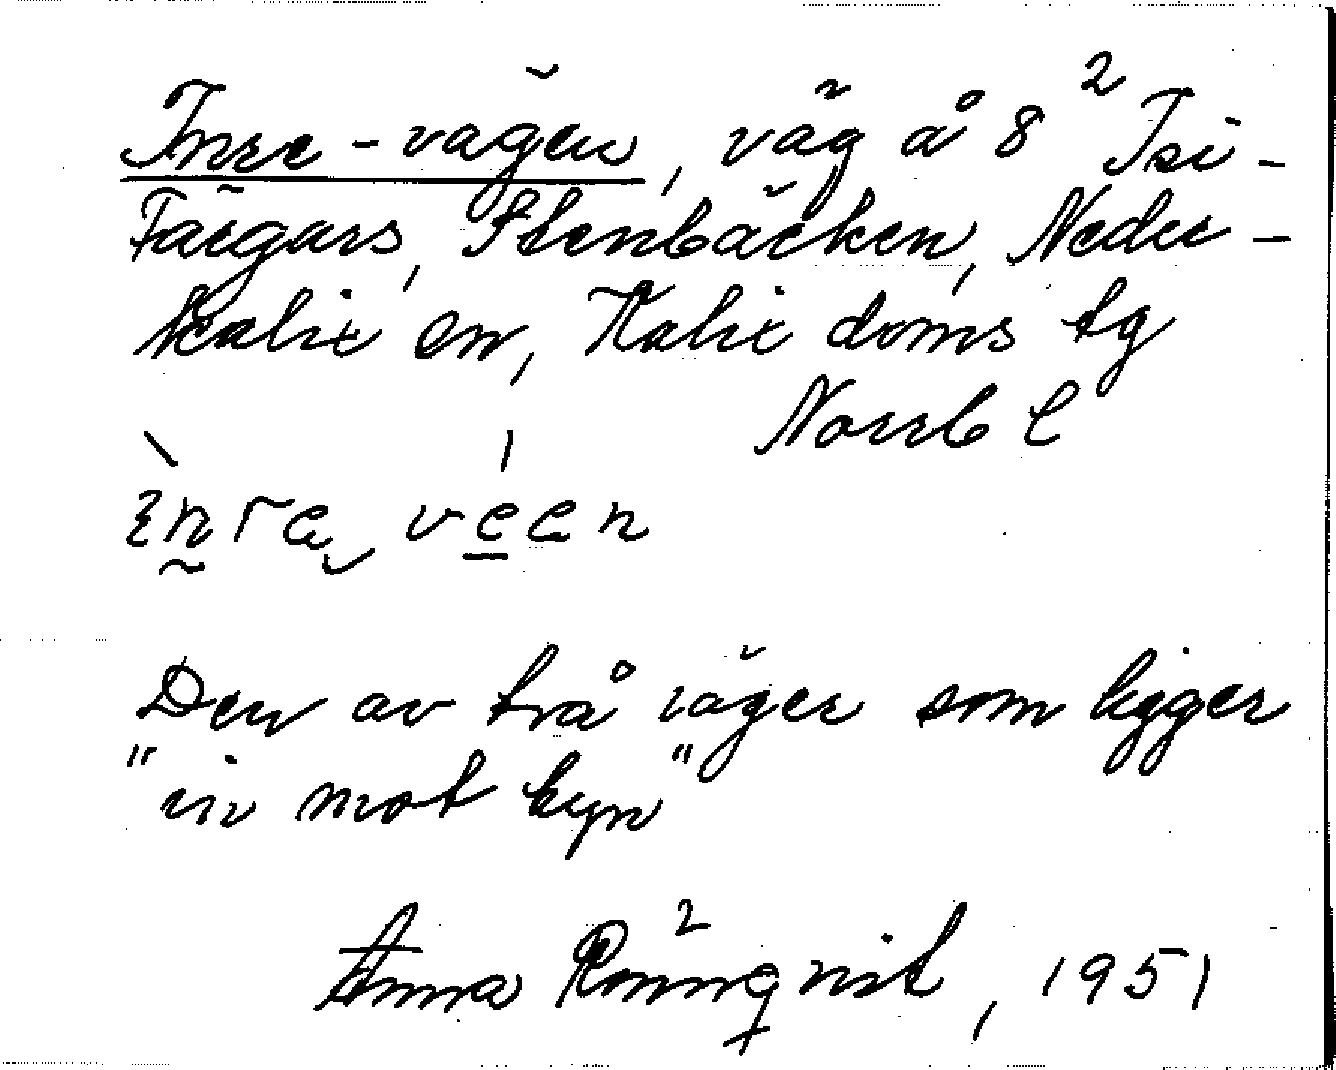 Inre-vägen, väg å 8² Isi-
Färgars, Stenbäcken, Neder-
kalix sn, Kalix doms tg
Norrb l
ìnrę véen
Den av två väger som ligger
"in mot byn"
Anna Rönnqvist, 1951